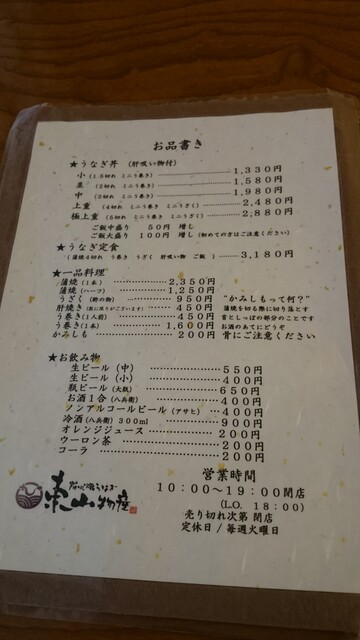 お品書き
★うなぎ丼 (肝吸い物付)
小 (1.5切れ ミニう巻き) 1,330円
並 (2切れ ミニう巻き) 1,580円
中 (3切れ ミニう巻き) 1,980円
上重 (4切れ ミニう巻き ミニうざく) 2,480円
極上重 (5切れ ミニう巻き ミニうざく) 2,880円
ご飯中盛り 50円 増し
ご飯大盛り 100円 増し (初めての方はご注意ください)
★うなぎ定食
(蒲焼4切れ う巻き うざく 肝吸い物 ご飯 ) 3,180円
★一品料理
蒲焼 (1本) 2,350円
蒲焼 (ハーフ) 1,250円
うざく (酢の物) 950円
肝焼き (数に限りがございます) 450円
う巻き (1人前) 450円
う巻き (1本) 1,600円
かみしも 200円
"かみしもって何?"
蒲焼を切る際に切り落とす
首としっぽの部分のことです
お酒のあてにどうぞ
骨にご注意ください
★お飲み物
生ビール (中) 550円
生ビール (小) 400円
瓶ビール (大瓶) 650円
お酒1合 (八兵衛) 400円
ノンアルコールビール (アサヒ) 400円
冷酒 (八兵衛) 300ml 900円
オレンジジュース 200円
ウーロン茶 200円
コーラ 200円
営業時間
10:00～19:00閉店
(LO. 18:00)
売り切れ次第 閉店
定休日/毎週火曜日
東山物産